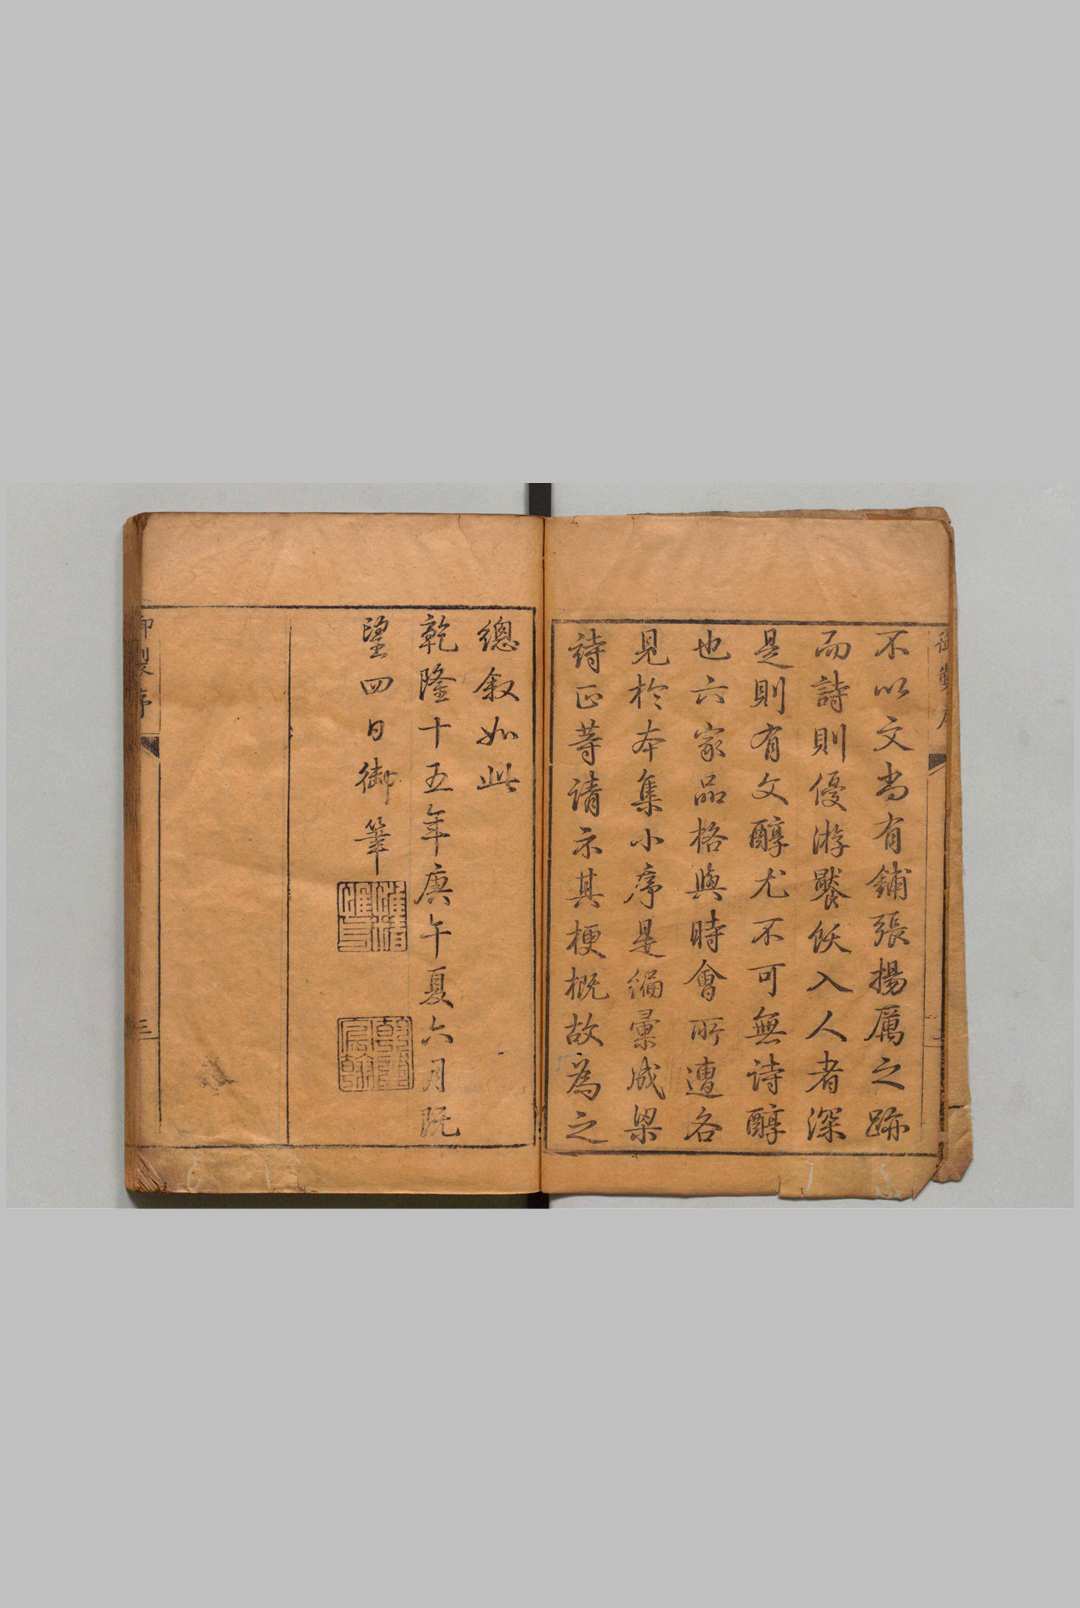 不以文尚有鋪張揚厲之跡
而詩則優游饜飫入人者深
是則有文醇尤不可無詩醇
也六家品格與時會所遭各
見於本集小序是編彙成梁
詩正等請示其梗概故為之
總敘如此
乾隆十五年庚午夏六月既
望四日御筆
惟精惟一
乾隆宸翰
御製序
三